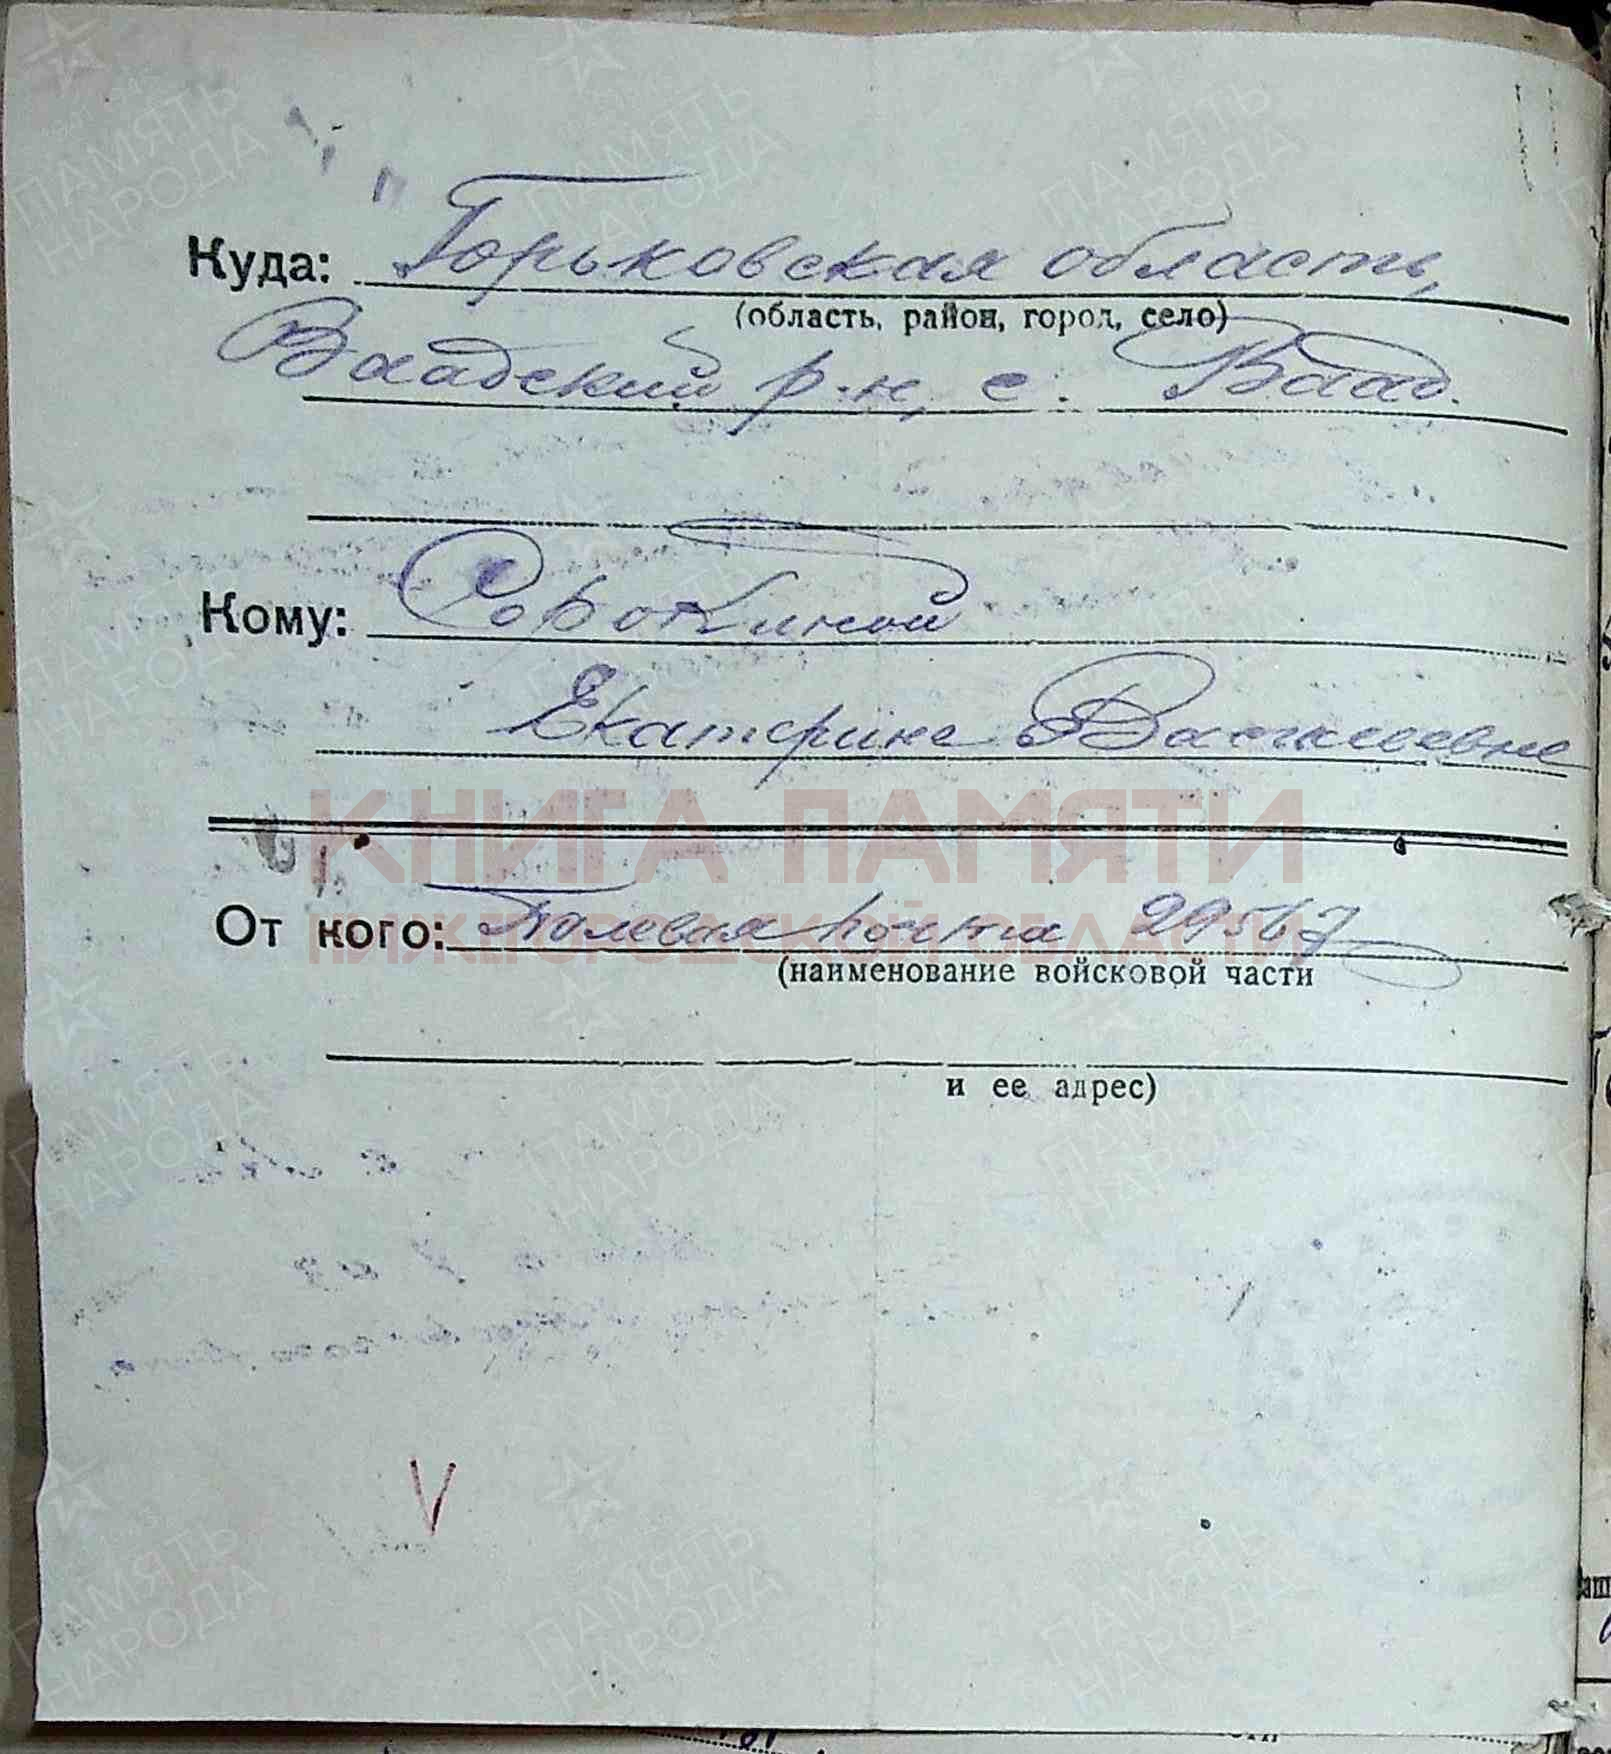 Куда: Горьковская область,
(область, район, город, село)
Ваадский р-н, с. Ваад.
Кому: Сорокиной
Екатерине Васильевне
КНИГА ПАМЯТИ
НИЖЕГОРОДСКОЙ ОБЛАСТИ
От кого: Полевая почта 29567
(наименование войсковой части
и ее адрес)
V
ПАМЯТЬ
НАРОДА